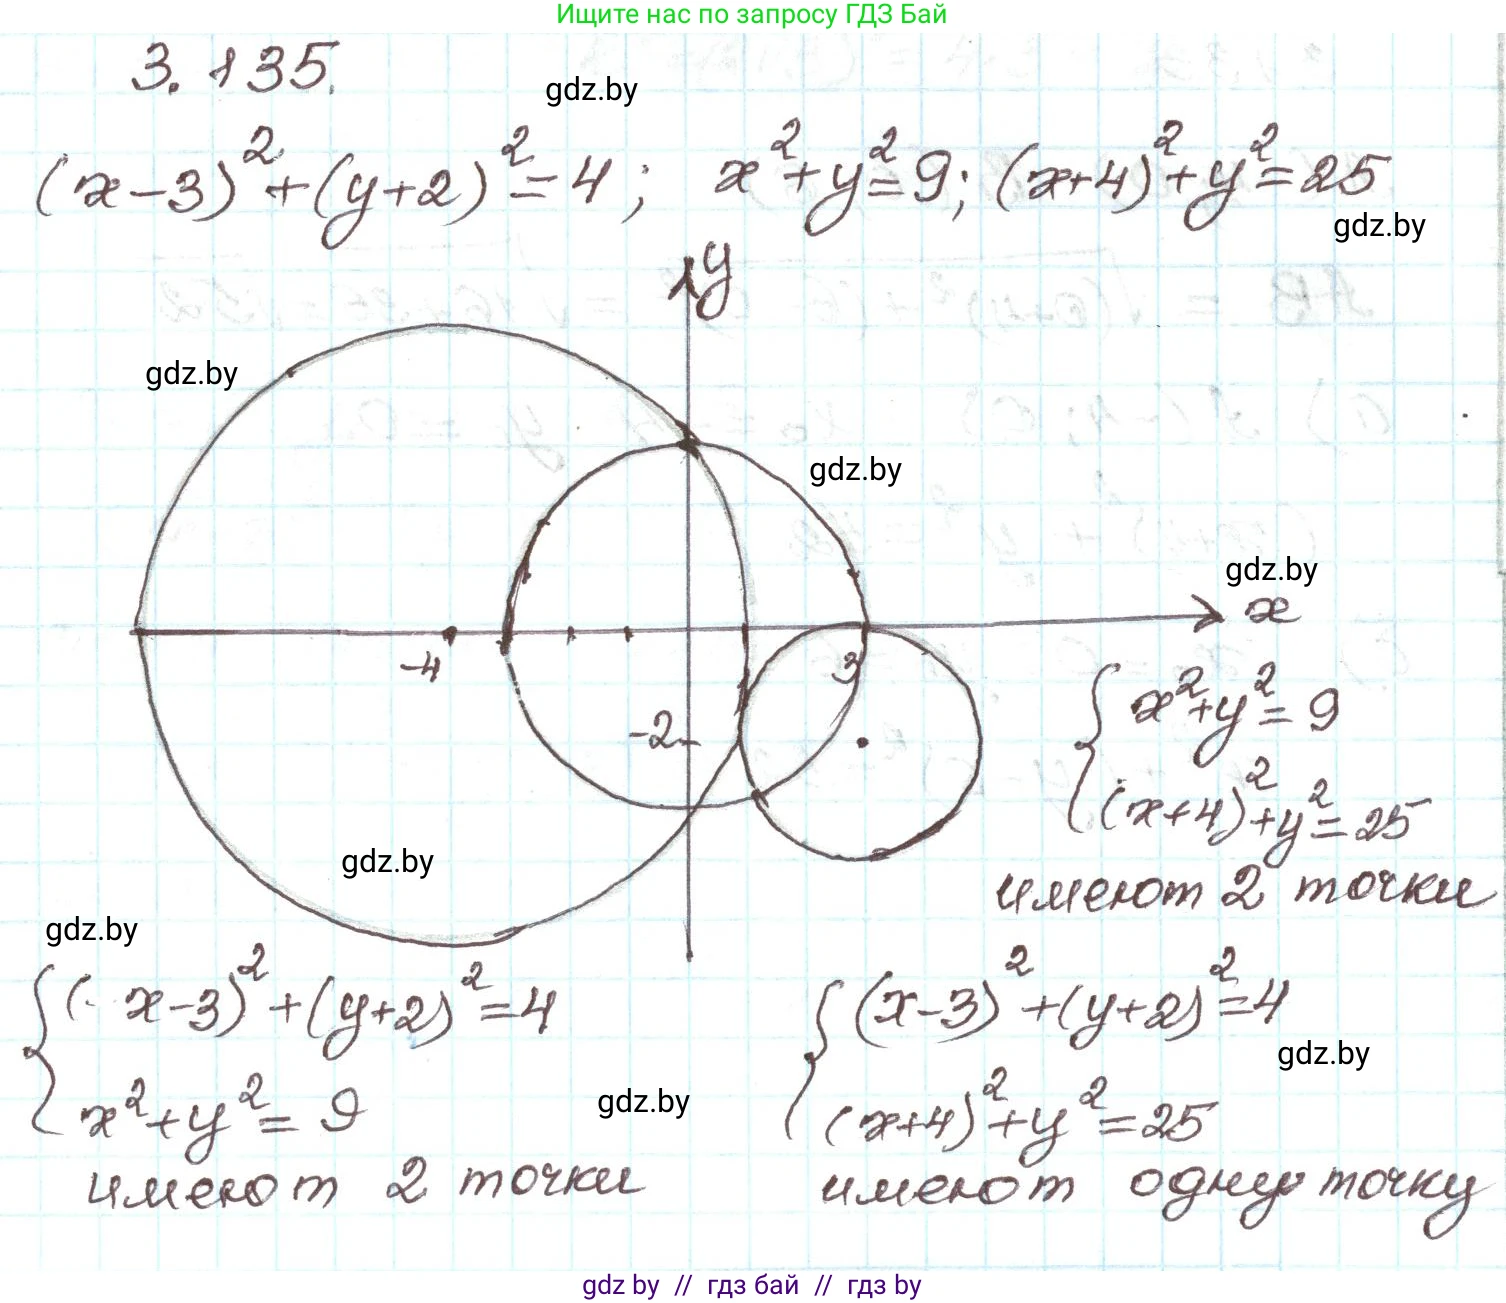 Ищите нас по запросу ГДЗ Бай
3.135.
gdz.by
(x-3)²+(y+2)²=4; x²+y²=9; (x+4)²+y²=25
gdz.by
y
gdz.by
gdz.by
gdz.by
x
-4
3
-2
x²+y²=9
(x+4)²+y²=25
gdz.by
имеют 2 точки
gdz.by
(x-3)²+(y+2)²=4
(x-3)²+(y+2)²=4
gdz.by
x²+y²=9
gdz.by
(x+4)²+y²=25
имеют 2 точки
имеют одну точку
gdz by // гдз бай // гдз by